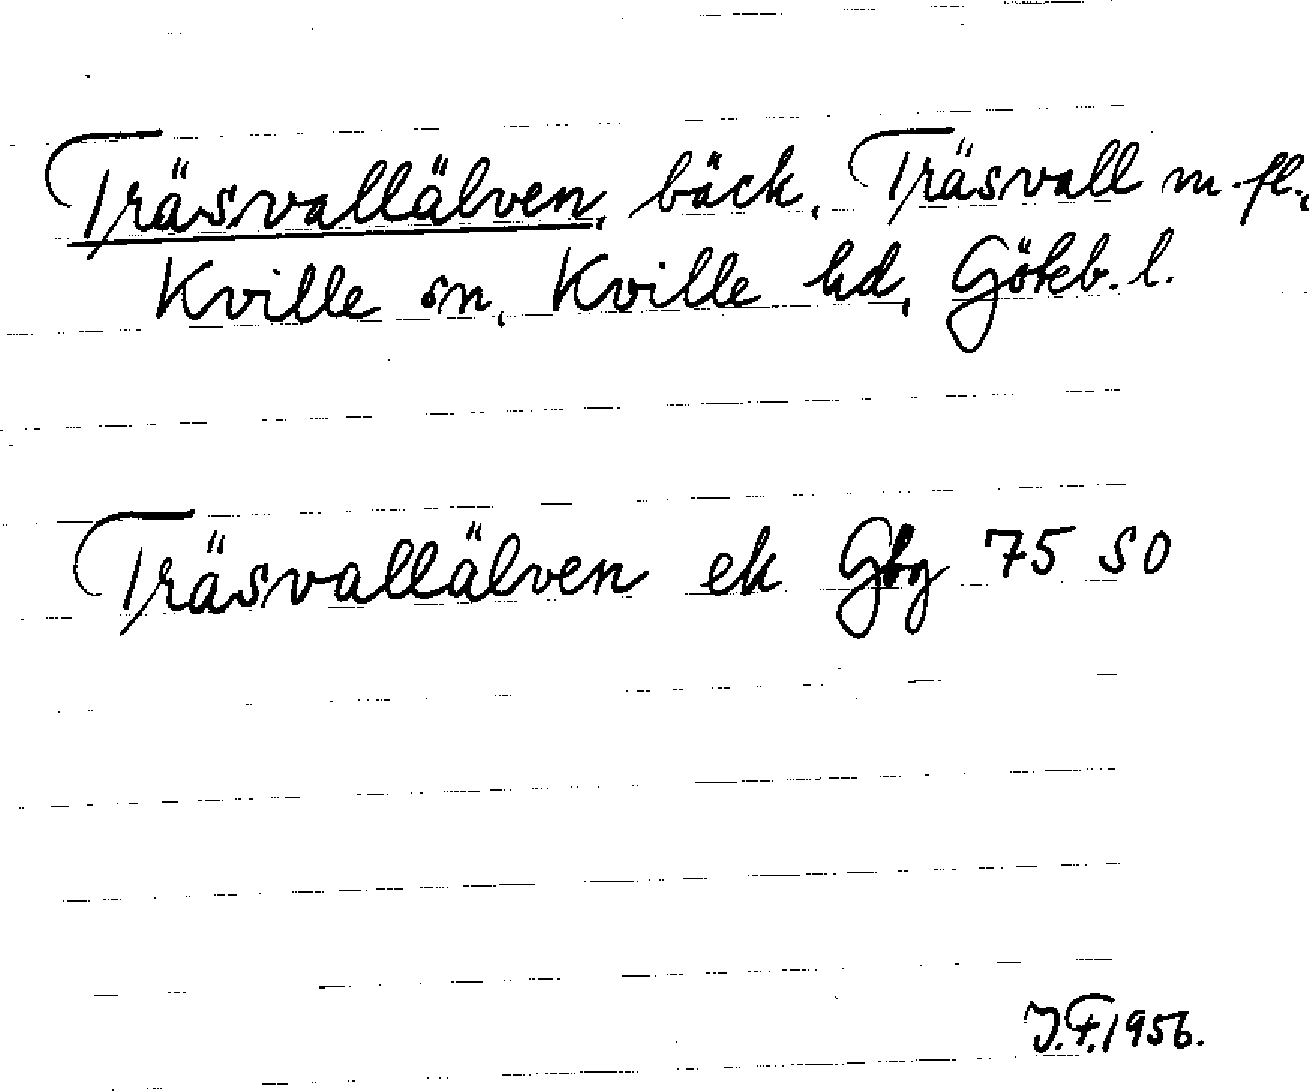 Träsvallälven, bäck, Träsvall m. fl.,
Kville sn, Kville hd, Göteb. l.
Träsvallälven ek Gbg 75 SO
J.F. 1956.